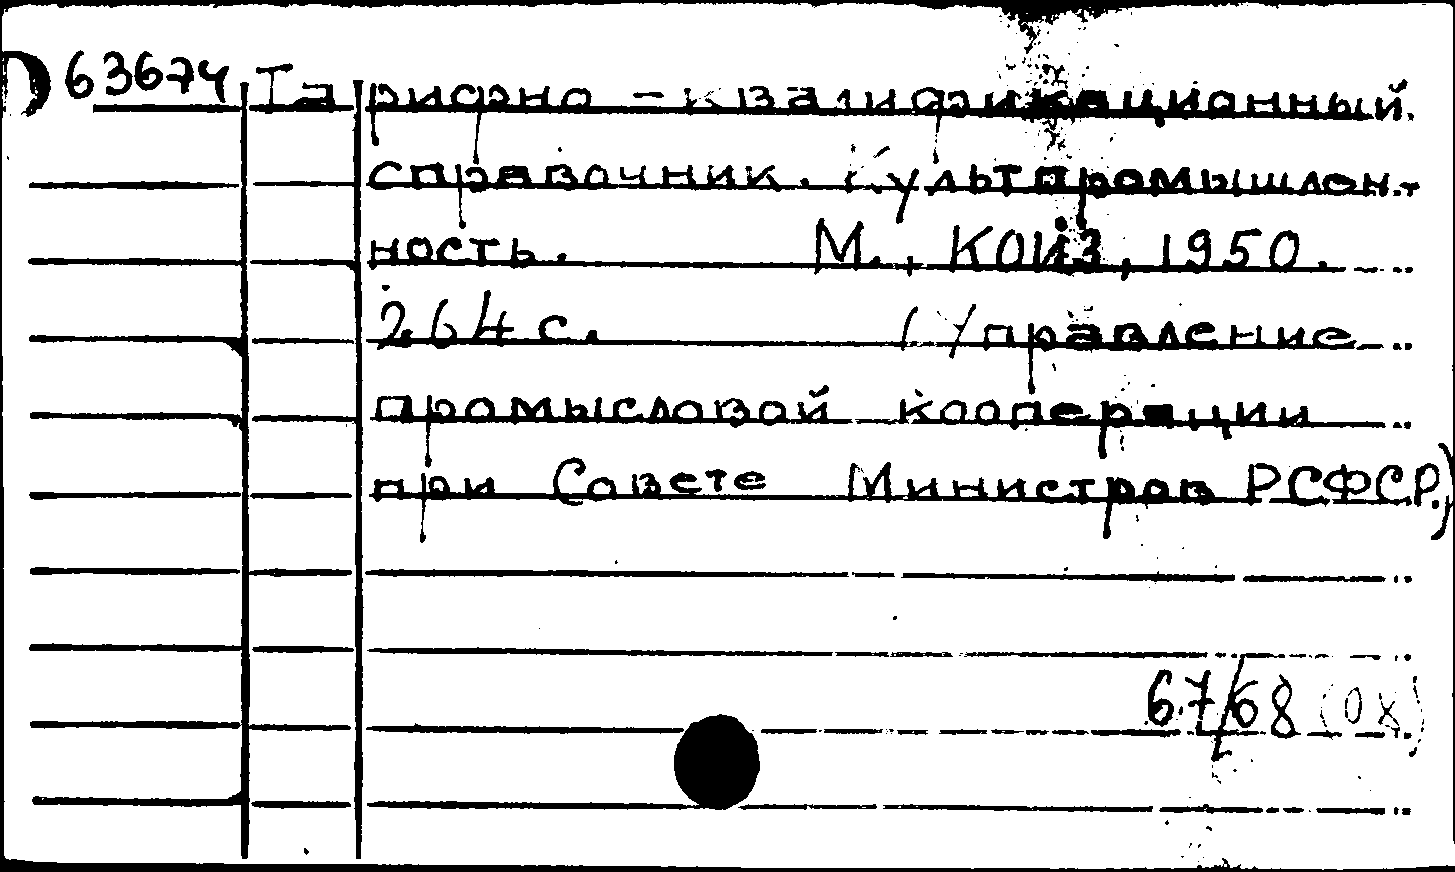 D 63674 Тарифно-квалификационный
справочник. Культпромышлен-
ность. М., КОИЗ, 1950.
264 с. (Управление
промысловой кооперации
при Совете Министров РСФСР.)
67/68 (0х)